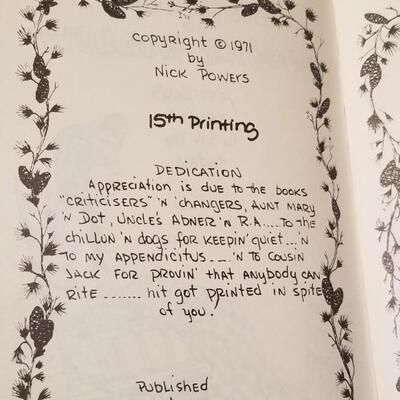 Copyright © 1971
by
Nick Powers
15th Printing
DEDICATION
Appreciation is due to the books
"criticisers" 'n 'changers, Aunt Mary
'n Dot, Uncle's Abner 'n R.A.....To the
chillun 'n dogs for keepin' quiet...'n
to my appendicitus....'n to cousin
Jack for provin' that anybody can
rite ....... hit got printed in spite
of you!
Published